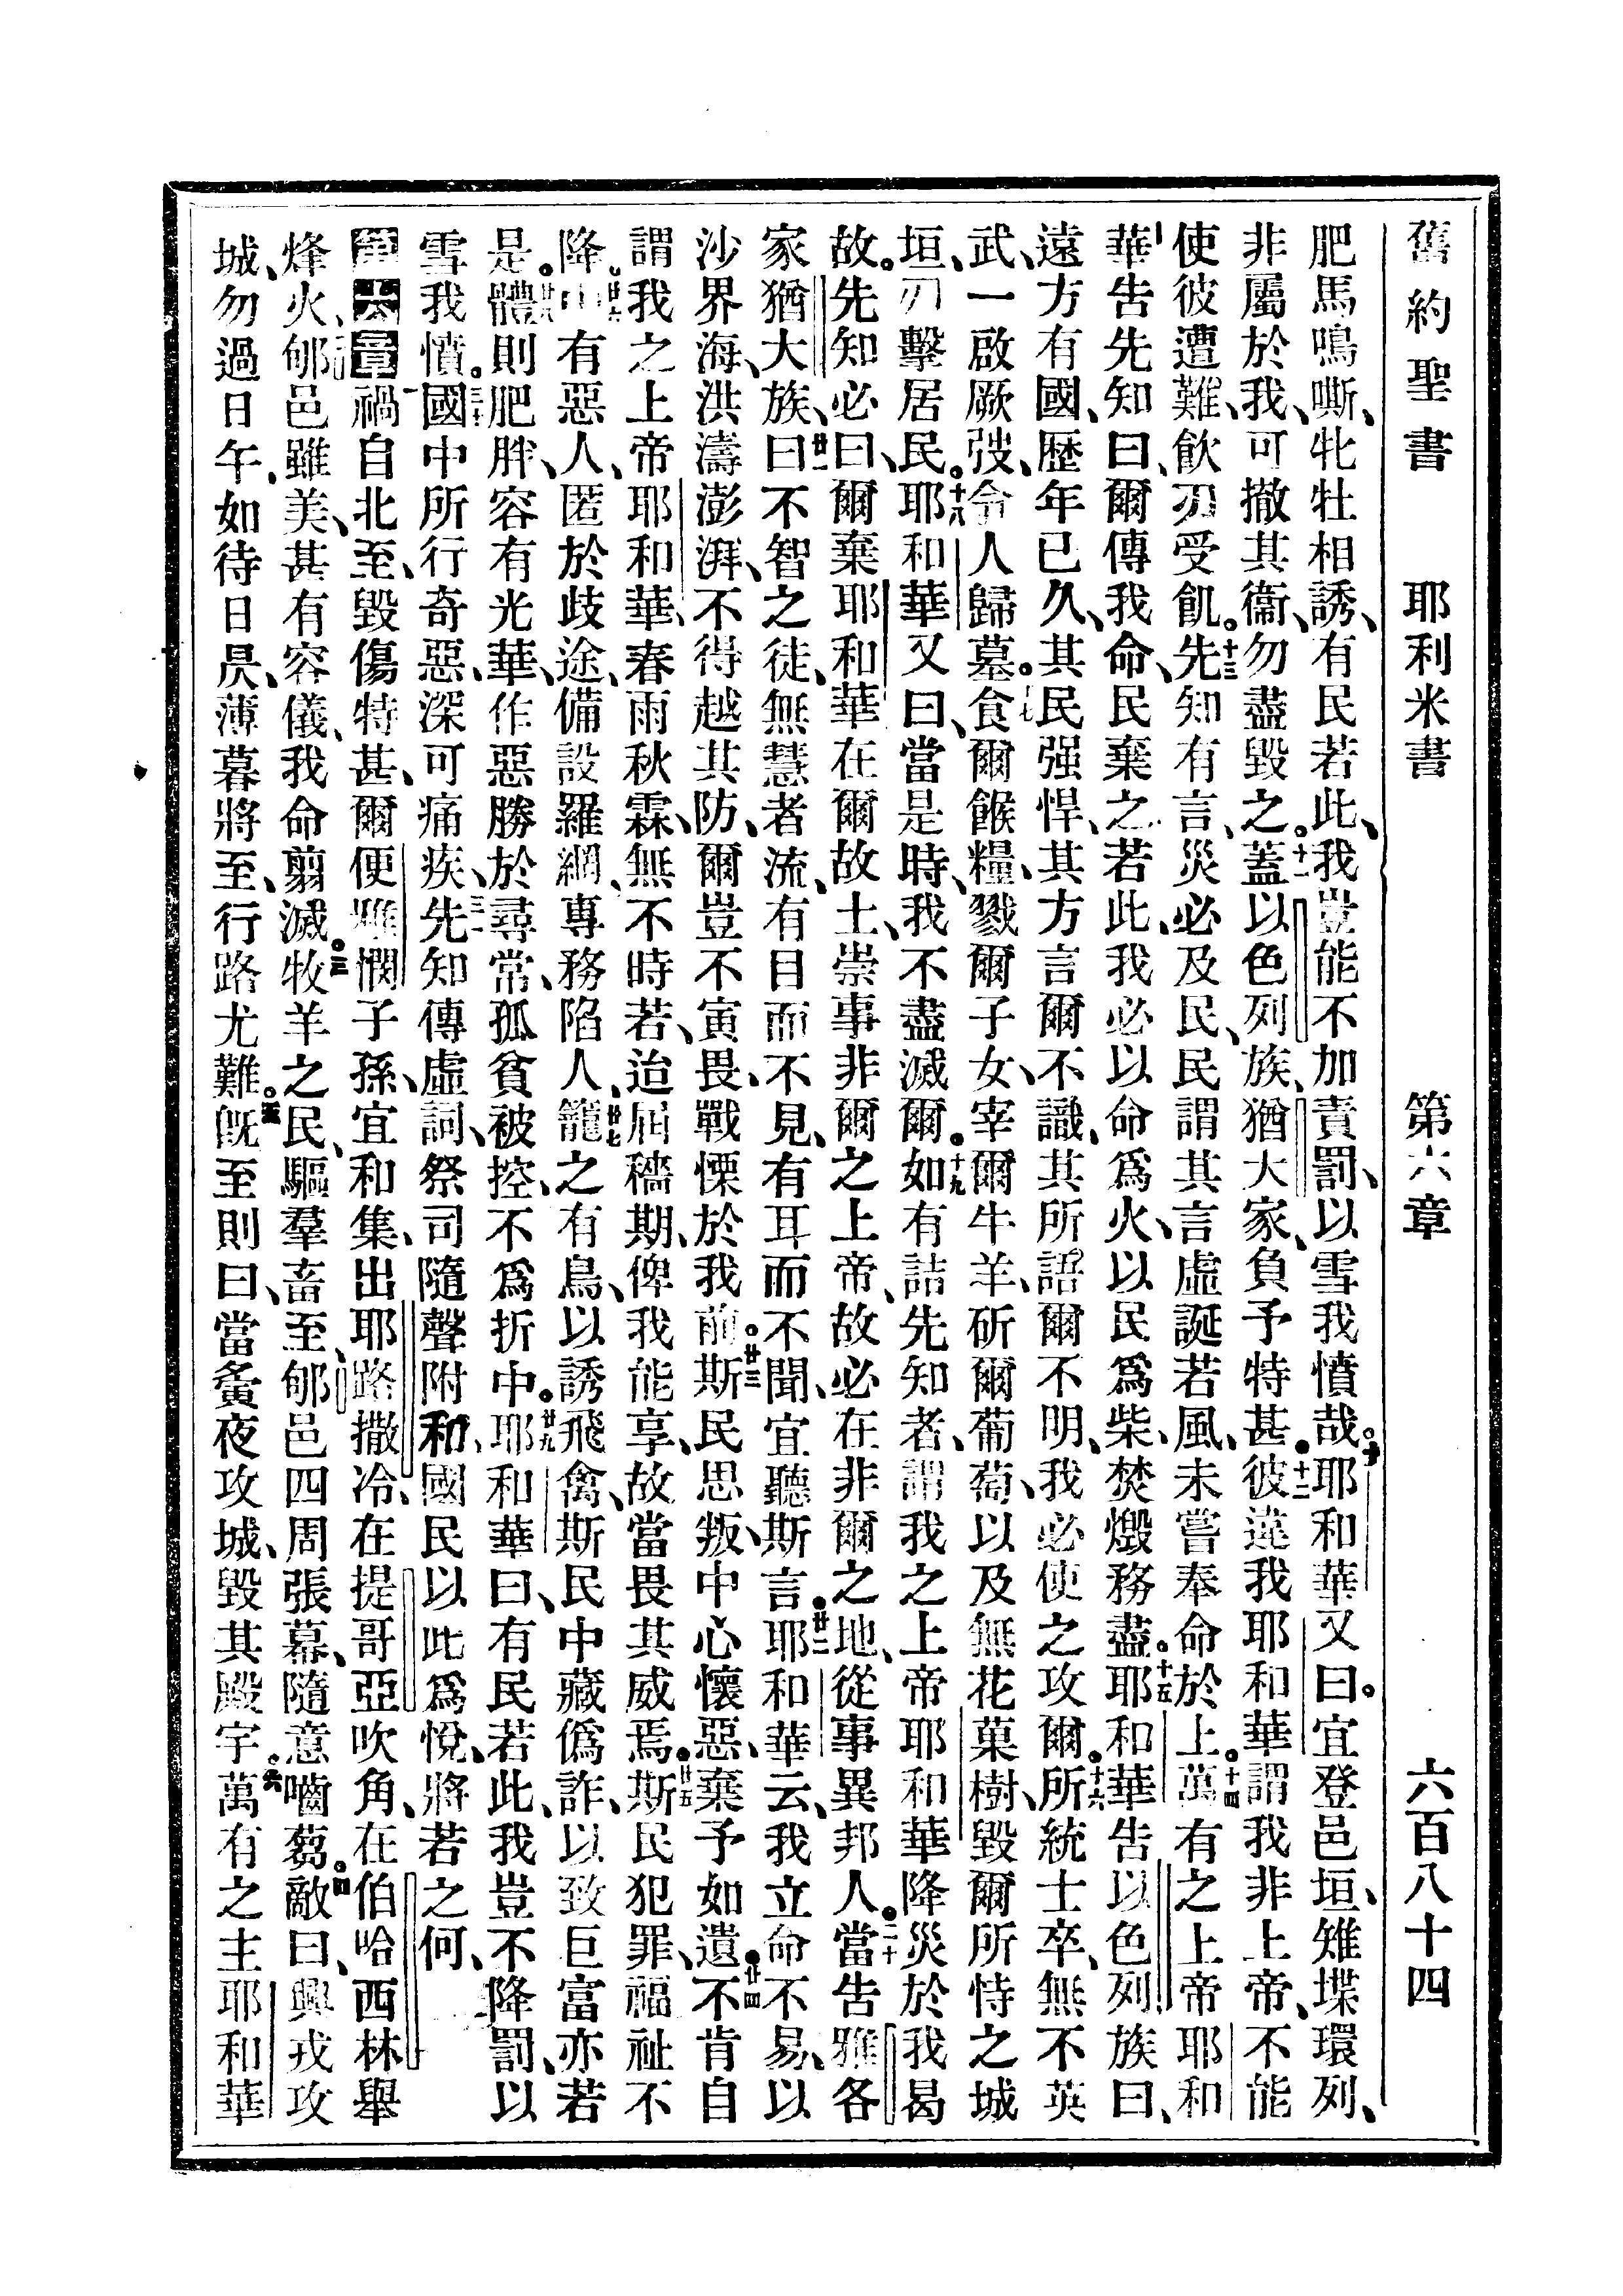 舊約聖書 耶利米書 第六章 六百八十四
肥馬鳴嘶、牝牡相誘、有民若此、我豈能不加責罰、以雪我憤哉。十耶和華又曰。宜登邑垣、雉堞環列、
非屬於我、可撤其衞、勿盡毀之。十一蓋以色列族、猶大家、負予特甚。十二彼違我耶和華謂我非上帝、不能
使彼遭難、飲刃受飢。十三先知有言、災必及民、民謂其言虛誕若風、未嘗奉命於上。十四萬有之上帝耶和
華告先知曰、爾傳我命、民棄之若此、我必以命爲火、以民爲柴、焚燬務盡。十五耶和華告以色列族曰、
遠方有國、歷年已久、其民强悍、其方言爾不識、其所語爾不明、我必使之攻爾。十六所統士卒、無不英
武、一啟厥弢、令人歸墓。十七食爾餱糧、戮爾子女、宰爾牛羊、斫爾葡萄、以及無花菓樹、毀爾所恃之城
垣、刃擊居民。十八耶和華又曰、當是時、我不盡滅爾。十九如有詰先知者、謂我之上帝耶和華降災於我曷
故。先知必曰、爾棄耶和華在爾故土、崇事非爾之上帝、故必在非爾之地、從事異邦人。二十當告雅各
家猶大族、曰廿一不智之徒、無慧者流、有目而不見、有耳而不聞、宜聽斯言。廿二耶和華云、我立命不易、以
沙界海、洪濤澎湃、不得越其防、爾豈不寅畏、戰慄於我前。廿三斯民思叛、中心懷惡、棄予如遺。廿四不肯自
謂我之上帝耶和華、春雨秋霖、無不時若、迨屆穡期、俾我能享、故當畏其威焉。廿五斯民犯罪、福祉不
降。廿六中有惡人、匿於歧途、備設羅網、專務陷人、廿七籠之有鳥、以誘飛禽、斯民中藏僞詐、以致巨富亦若
是。廿八體則肥胖、容有光華、作惡勝於尋常、孤貧被控、不爲折中。廿九耶和華曰、有民若此、我豈不降罰、以
雪我憤。三十國中所行奇惡、深可痛疾、三一先知傳虛詞、祭司隨聲附和、國民以此爲悅、將若之何、
第六章 一禍自北至、毀傷特甚、爾便雅憫子孫、宜和集、出耶路撒冷、在提哥亞吹角、在伯哈西林舉
烽火、二郇邑雖美、甚有容儀、我命翦滅。三牧羊之民、驅羣畜至、郇邑四周張幕、隨意嚙芻。四敵曰、興戎攻
城、勿過日午、如待日昃、薄暮將至、行路尤難。五旣至則曰、當夤夜攻城、毀其殿宇。六萬有之主耶和華